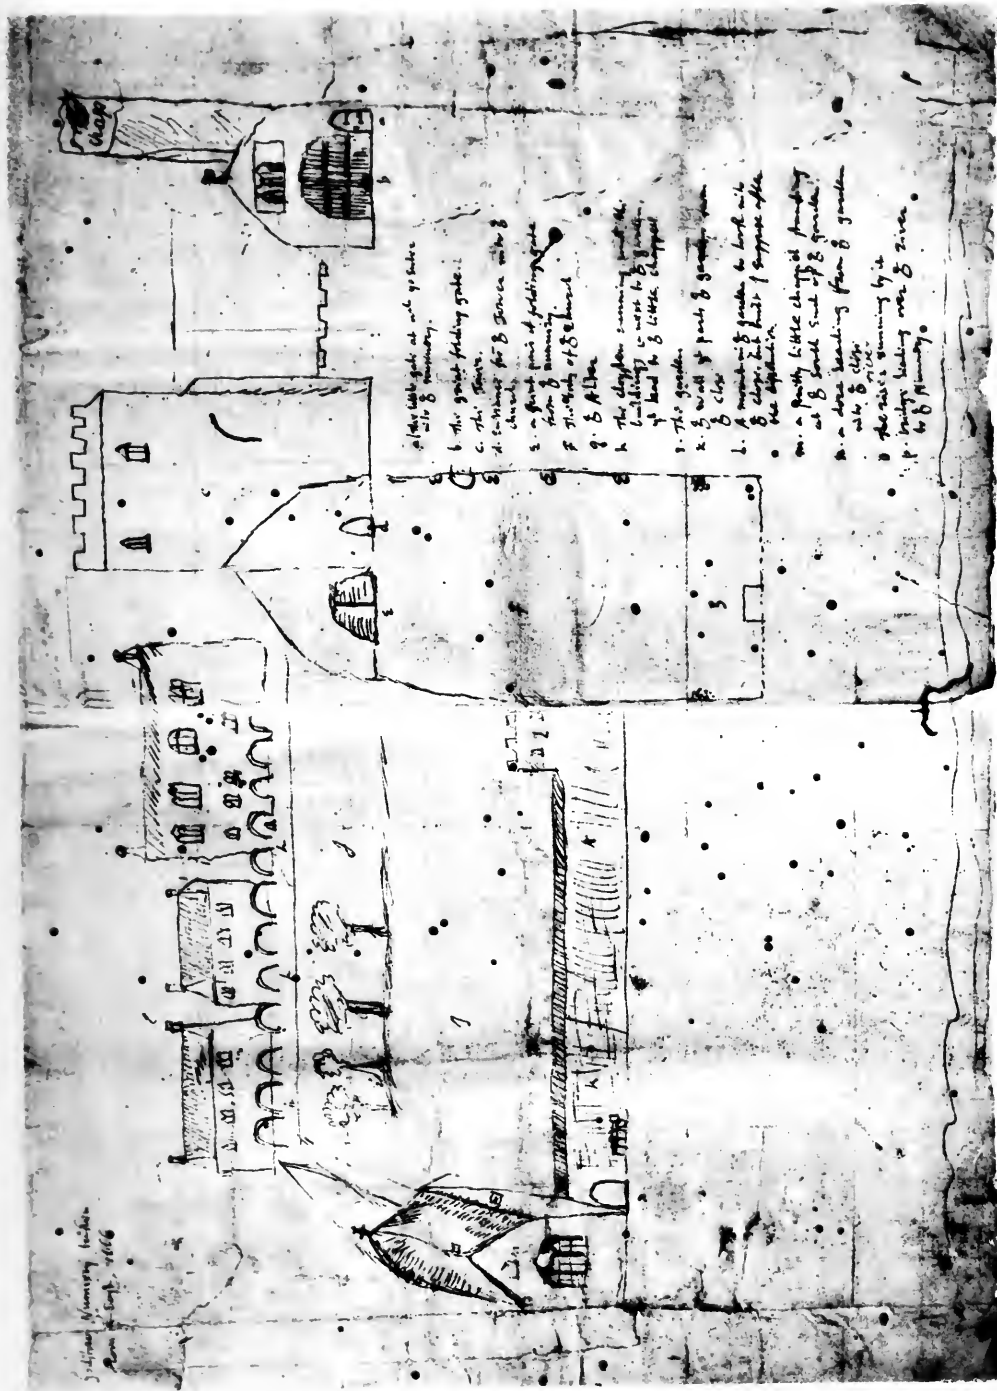 Nunnery taken
from 1666
Chap
a the little gate at
into ye nunnery.
b. the great folding gate.
c. The Tower.
d. entrance for ye Towne into ye
church.
e. a great pair of folding gate
from ye nunnery.
f. The Body of ye Church
g. ye Altar
h. The cloysters running
buildings next to ye garden,
yt lead to ye little chappel
The garden
k. ye wall yt parts ye garden from
ye close
l. A mount in ye garden to look into
ye close, but built I suppose after
the dissolution
m. a pretty little chappel standing
at ye South end of ye garden.
n. a dore leading from ye garden
into ye close
o The river running by it
p. bridge leading over ye River
to ye Nunnery.